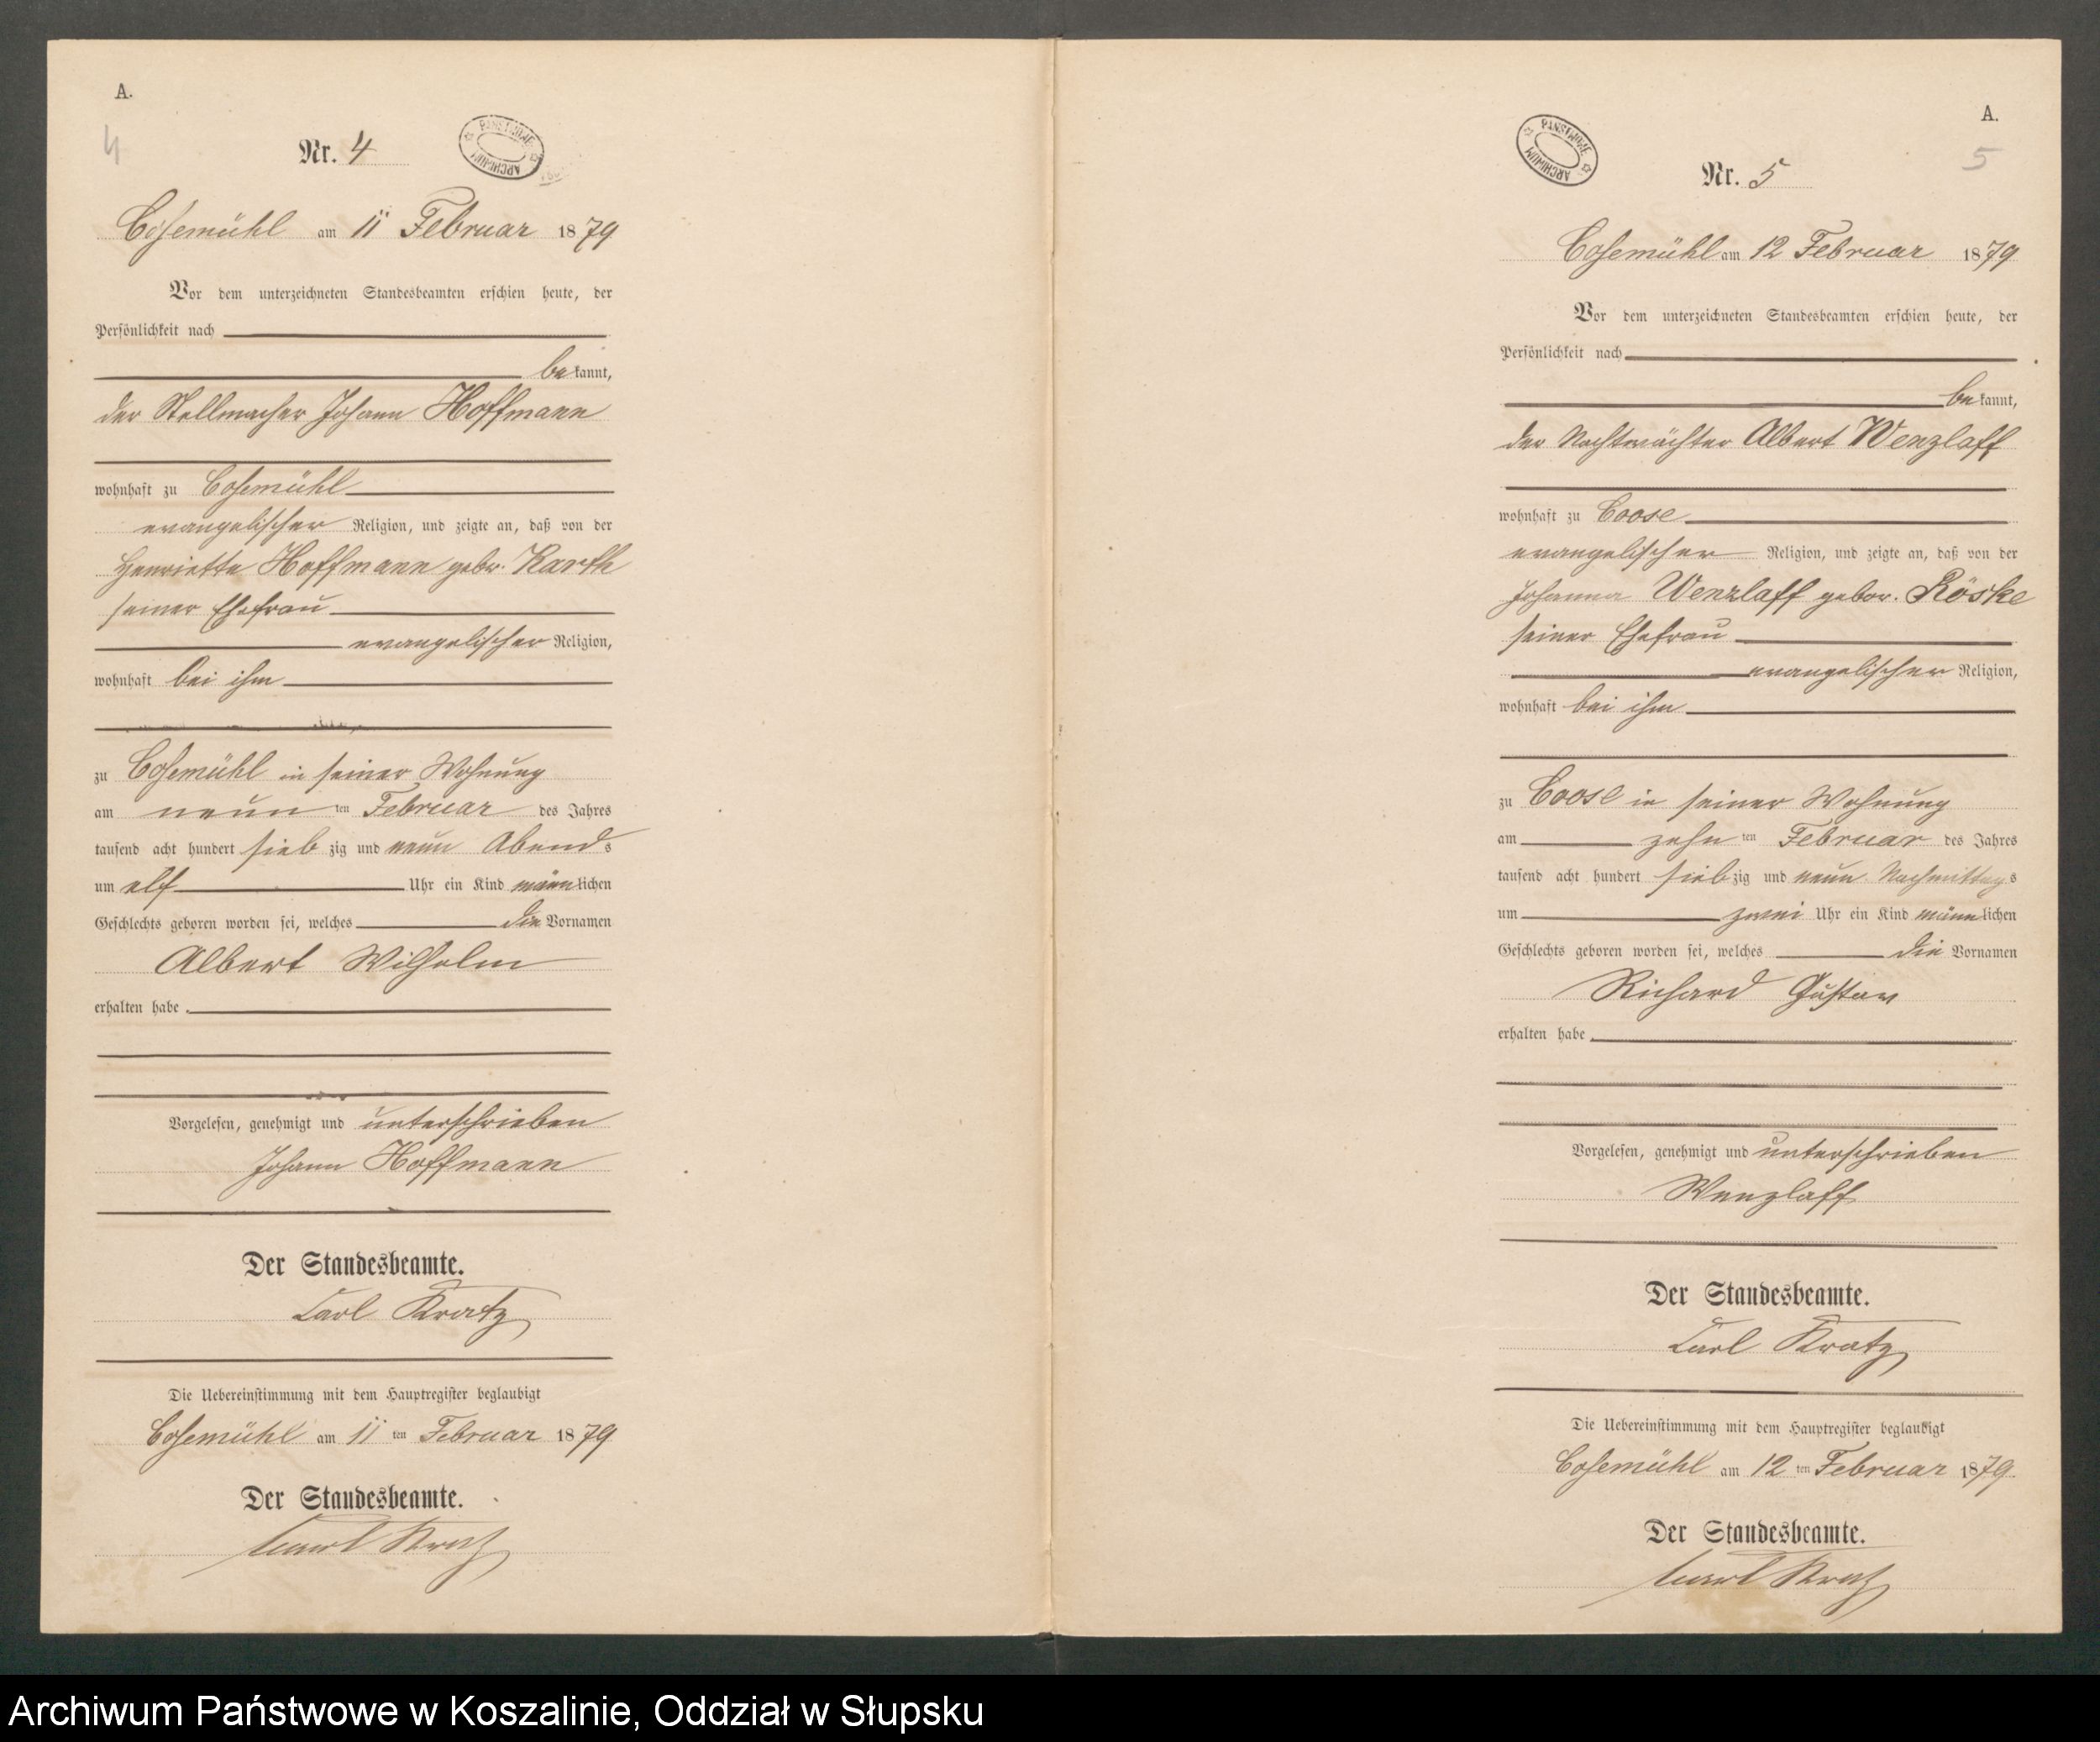 A.
4
Nr. 4
PAŃSTWOWE
ARCHIWUM
Cosemühl am 11 Februar 1879
Vor dem unterzeichneten Standesbeamten erschien heute, der
Persönlichkeit nach
bekannt,
der Stellmacher Johann Hoffmann
wohnhaft zu Cosemühl
evangelischer Religion, und zeigte an, daß von der
Henriette Hoffmann gebr. Karth
seiner Ehefrau
evangelischer Religion,
wohnhaft bei ihm
zu Cosemühl in seiner Wohnung
am neun ten Februar des Jahres
tausend acht hundert siebzig und neun Abends
um elf Uhr ein Kind männlichen
Geschlechts geboren worden sei, welches die Vornamen
Albert Wilhelm
erhalten habe.
Vorgelesen, genehmigt und unterschrieben
Johann Hoffmann
Der Standesbeamte.
Carl Kratz
Die Uebereinstimmung mit dem Hauptregister beglaubigt
Cosemühl am 11 ten Februar 1879
Der Standesbeamte.
Carl Kratz
A.
5
Nr. 5
PAŃSTWOWE
ARCHIWUM
Cosemühl am 12 Februar 1879
Vor dem unterzeichneten Standesbeamten erschien heute, der
Persönlichkeit nach
bekannt,
der Nachtwächter Albert Wenzlaff
wohnhaft zu Coose
evangelischer Religion, und zeigte an, daß von der
Johanna Wenzlaff gebor. Röske
seiner Ehefrau
evangelischer Religion,
wohnhaft bei ihm
zu Coose in seiner Wohnung
am zehn ten Februar des Jahres
tausend acht hundert siebzig und neun Nachmittags
um zwei Uhr ein Kind männlichen
Geschlechts geboren worden sei, welches die Vornamen
Richard Gustav
erhalten habe.
Vorgelesen, genehmigt und unterschrieben
Wenzlaff
Der Standesbeamte.
Carl Kratz
Die Uebereinstimmung mit dem Hauptregister beglaubigt
Cosemühl am 12 ten Februar 1879.
Der Standesbeamte.
Carl Kratz
Archiwum Państwowe w Koszalinie, Oddział w Słupsku